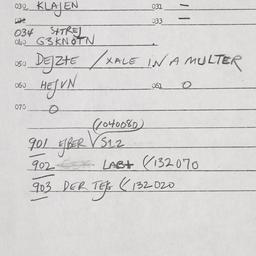 030 KLAJEN 031 —
033 —
034 SXTREJ
040 G3KNOTN
050 DEJZTE / XALE IN A MULTER
060 HEJVN 061 O
070 O
(040080)
901 EJBER √ S12
902 LABT (/132070
903 DER TEJS (/132020